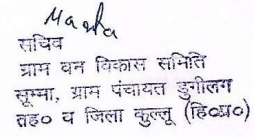 सचिव
ग्राम वन विकास समिति
सूम्बा, ग्राम पंचायत डुगीलग
तह० व जिला कुल्लू (हि०प्र०)